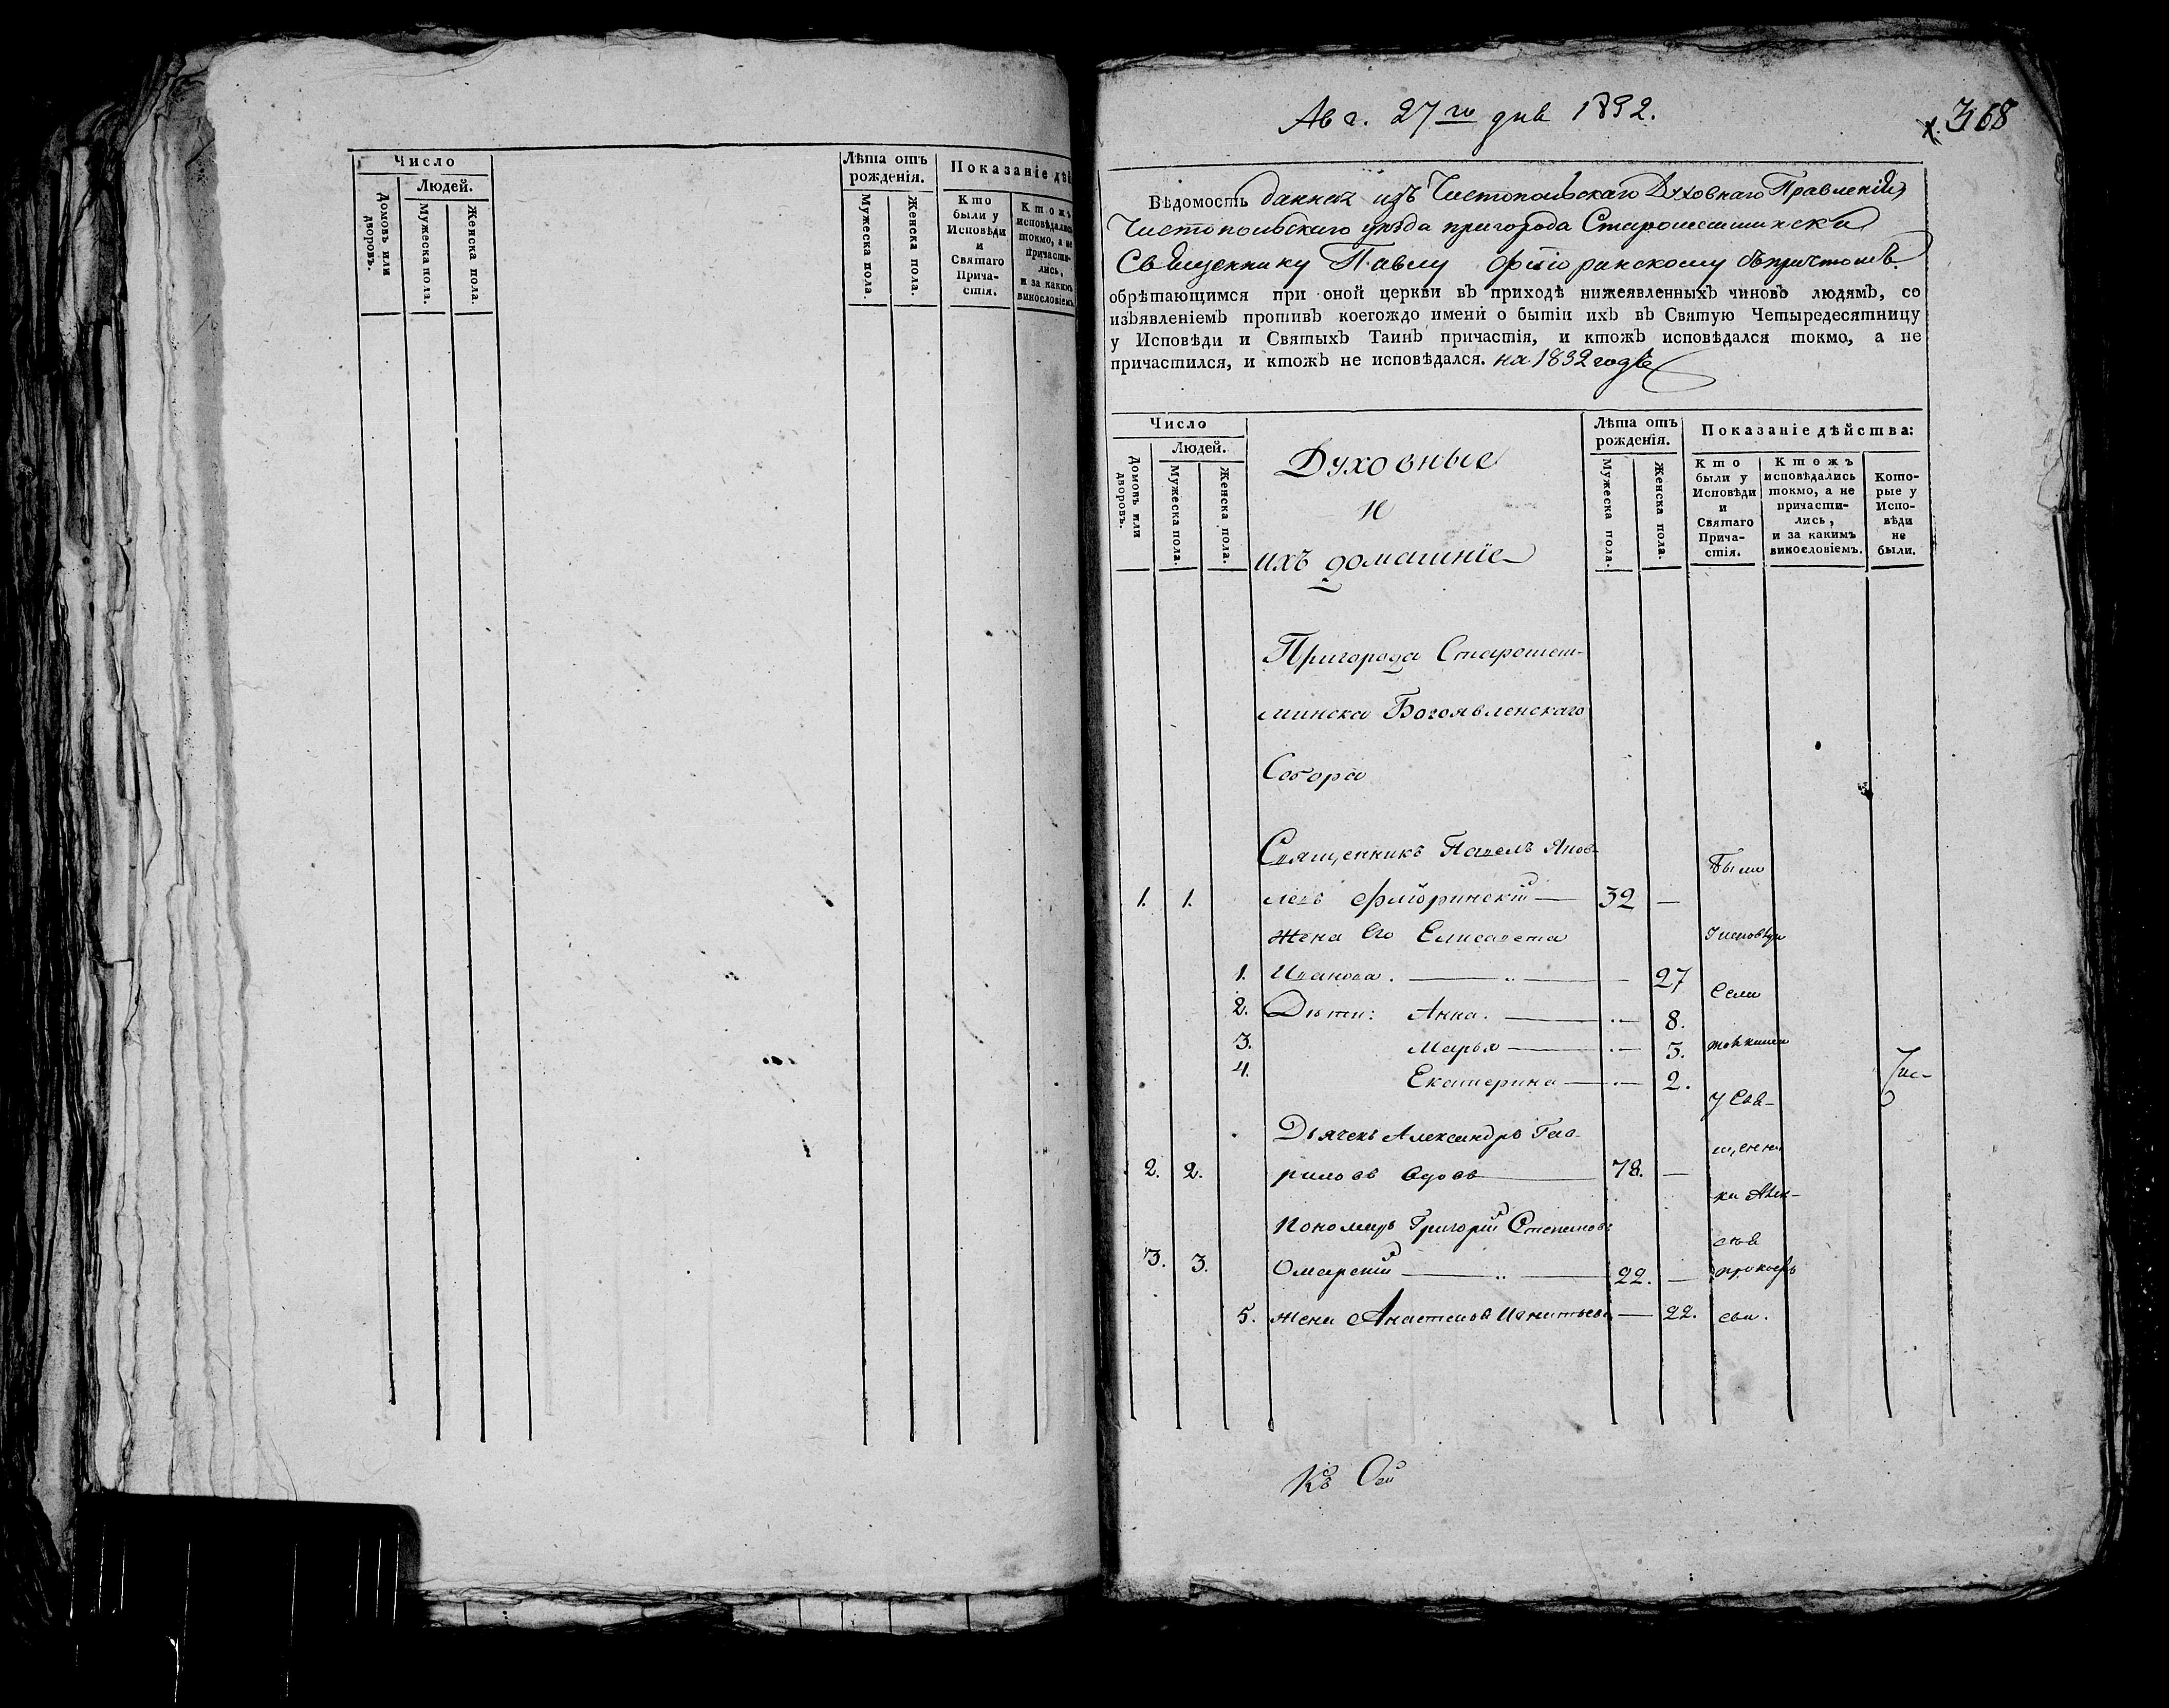 Число
Людей.
Домовъ или дворовъ.
Мужеска пола.
Женска пола.
Лѣта отъ рожденія.
Мужеска пола.
Женска пола.
Показаніе дѣй
Кто
были у
Исповѣди
и
Святаго
Прича-
стія.
Ктожъ
исповѣдались
токмо, а не
причасти-
лись,
и за какимъ
винословіемъ.
Авг. 27го дня 1832.
368
Вѣдомость данная изъ Чистопольскаго Духовнаго Правленія,
Чистопольскаго уѣзда пригорода Старошешминска
Священнику Павлу съ причтомъ
обрѣтающимся при оной церкви въ приходѣ нижеявленныхъ чиновъ людямъ, со
изъявленіемъ противъ коегождо имени о бытіи ихъ въ Святую Четыредесятницу
у Исповѣди и Святыхъ Таинъ причастія, и ктожъ исповѣдался токмо, а не
причастился, и ктожъ не исповѣдался. на 1832 годъ
Число
Людей.
Домовъ или дворовъ.
Мужеска пола.
Женска пола.
Духовные
и
ихъ домашніе
Лѣта отъ рожденія.
Мужеска пола.
Женска пола.
Показаніе дѣйства:
Кто
были у
Исповѣди
и
Святаго
Прича-
стія.
Ктожъ
исповѣдались
токмо, а не
причасти-
лись,
и за какимъ
винословіемъ.
Кото-
рые у
Испо-
вѣди
не
были.
Пригорода Старошеш-
минска Богоявленскаго
Собора
Священникъ Павелъ Яков-
1. 1. левъ Флоринскій — 32 —
Жена Его Елисавета
1. Иванова. — 27
2. Дѣти: Анна. — 8.
3. Марья — 5.
4. Екатерина — 2.
Дьячекъ Александръ Гав-
2. 2. риловъ — 78. —
Пономарь Григорій Степановъ
3. 3. Омарскій — 22. —
5. Жена Анастасія Игнатьева — 22.
Были
у исповѣди
у Свя-
щенни
ка Алек-
сѣя